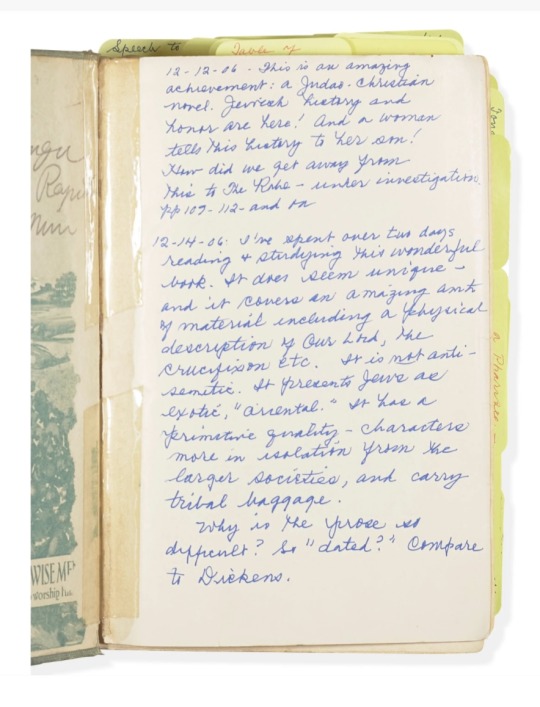 Speech to
Table of
12-12-06 - This is an amazing
achievement: a Judao-Christian
novel. Jewish history and
honor are here! And a woman
tells this history to her son!
How did we get away from
this to The Robe - under investigation.
pp 107-112- and on
12-14-06: I've spent over two days
reading + studying this wonderful
book. It does seem unique -
and it covers an amazing amt
of material including a physical
description of Our Lord, the
crucifixion etc. It is not anti-
semetic. It presents Jews as
exotic, "oriental." It has a
primitive quality - characters
more in isolation from the
larger societies, and carry
tribal baggage.
Why is the prose so
difficult? So "dated?" Compare
to Dickens.
a Pharisee -
WISE ME
worship